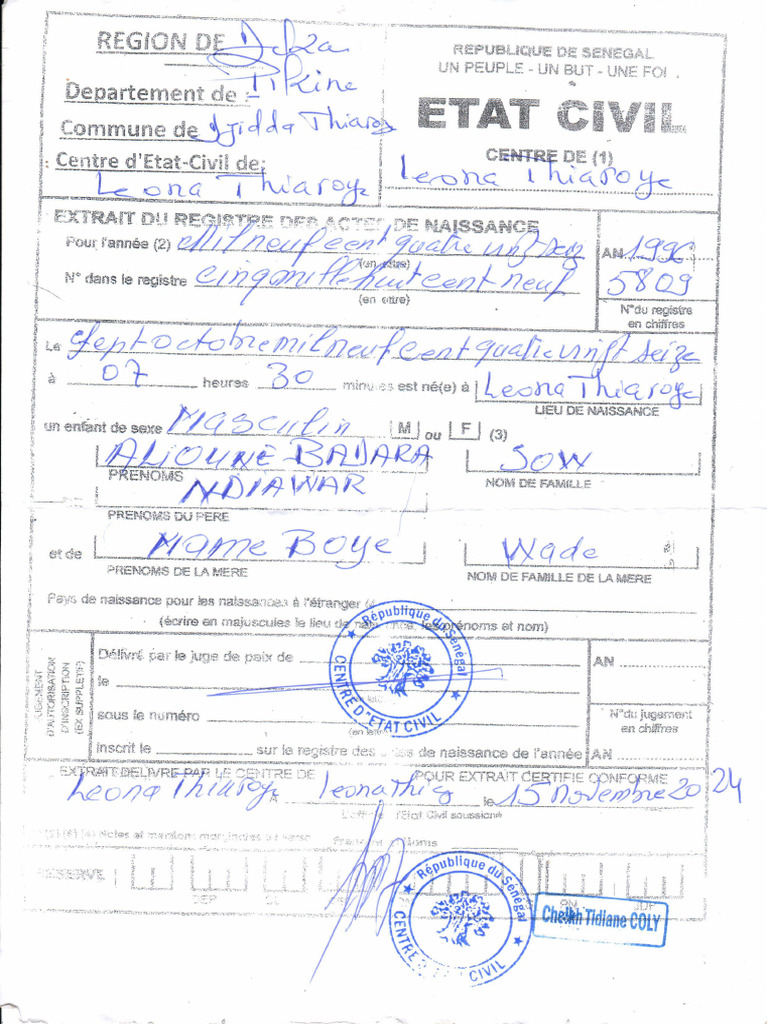 REGION DE Dakar
REPUBLIQUE DE SENEGAL
UN PEUPLE - UN BUT - UNE FOI
Departement de : Pikine
ETAT CIVIL
Commune de Djidda Thiaroye
CENTRE DE (1)
Centre d'Etat-Civil de:
Leona Thiaroye
Leona Thiaroye
EXTRAIT DU REGISTRE DES ACTES DE NAISSANCE
Pour l'année (2) Mil neuf cent quatre vingt seize
AN 1996
(en lettre)
N° dans le registre Cinq mille huit cent neuf
5809
(en lettre)
N°du registre
en chiffres
Le Sept octobre mil neuf cent quatre vingt seize
à 07 heures 30 minutes est né(e) à Leona Thiaroye
LIEU DE NAISSANCE
un enfant de sexe Masculin M ou F (3)
ALIOUNE BADARA SOW
PRENOMS NOM DE FAMILLE
NDIAWAR
PRENOMS DU PERE
et de Mame Boye Wade
PRENOMS DE LA MERE NOM DE FAMILLE DE LA MERE
Pays de naissance pour les naissances à l'étranger
(écrire en majuscules le lieu de naissance, les prénoms et nom)
JUGEMENT
D'AUTORISATION
D'INSCRIPTION
(EX SUPPLETIF)
Délivré par le juge de paix de
AN
le
sous le numéro
N°du jugement
en chiffres
inscrit le sur le registre des actes de naissance de l'année AN
République du Sénégal
CENTRE D'ETAT CIVIL
EXTRAIT DELIVRE PAR LE CENTRE DE
POUR EXTRAIT CERTIFIE CONFORME
Leona Thiaroye A leona thia le 15 novembre 20 24
l'Etat Civil soussigné
RESERVE
DEP
République du Sénégal
CENTRE D'ETAT CIVIL
Cheikh Tidiane COLY